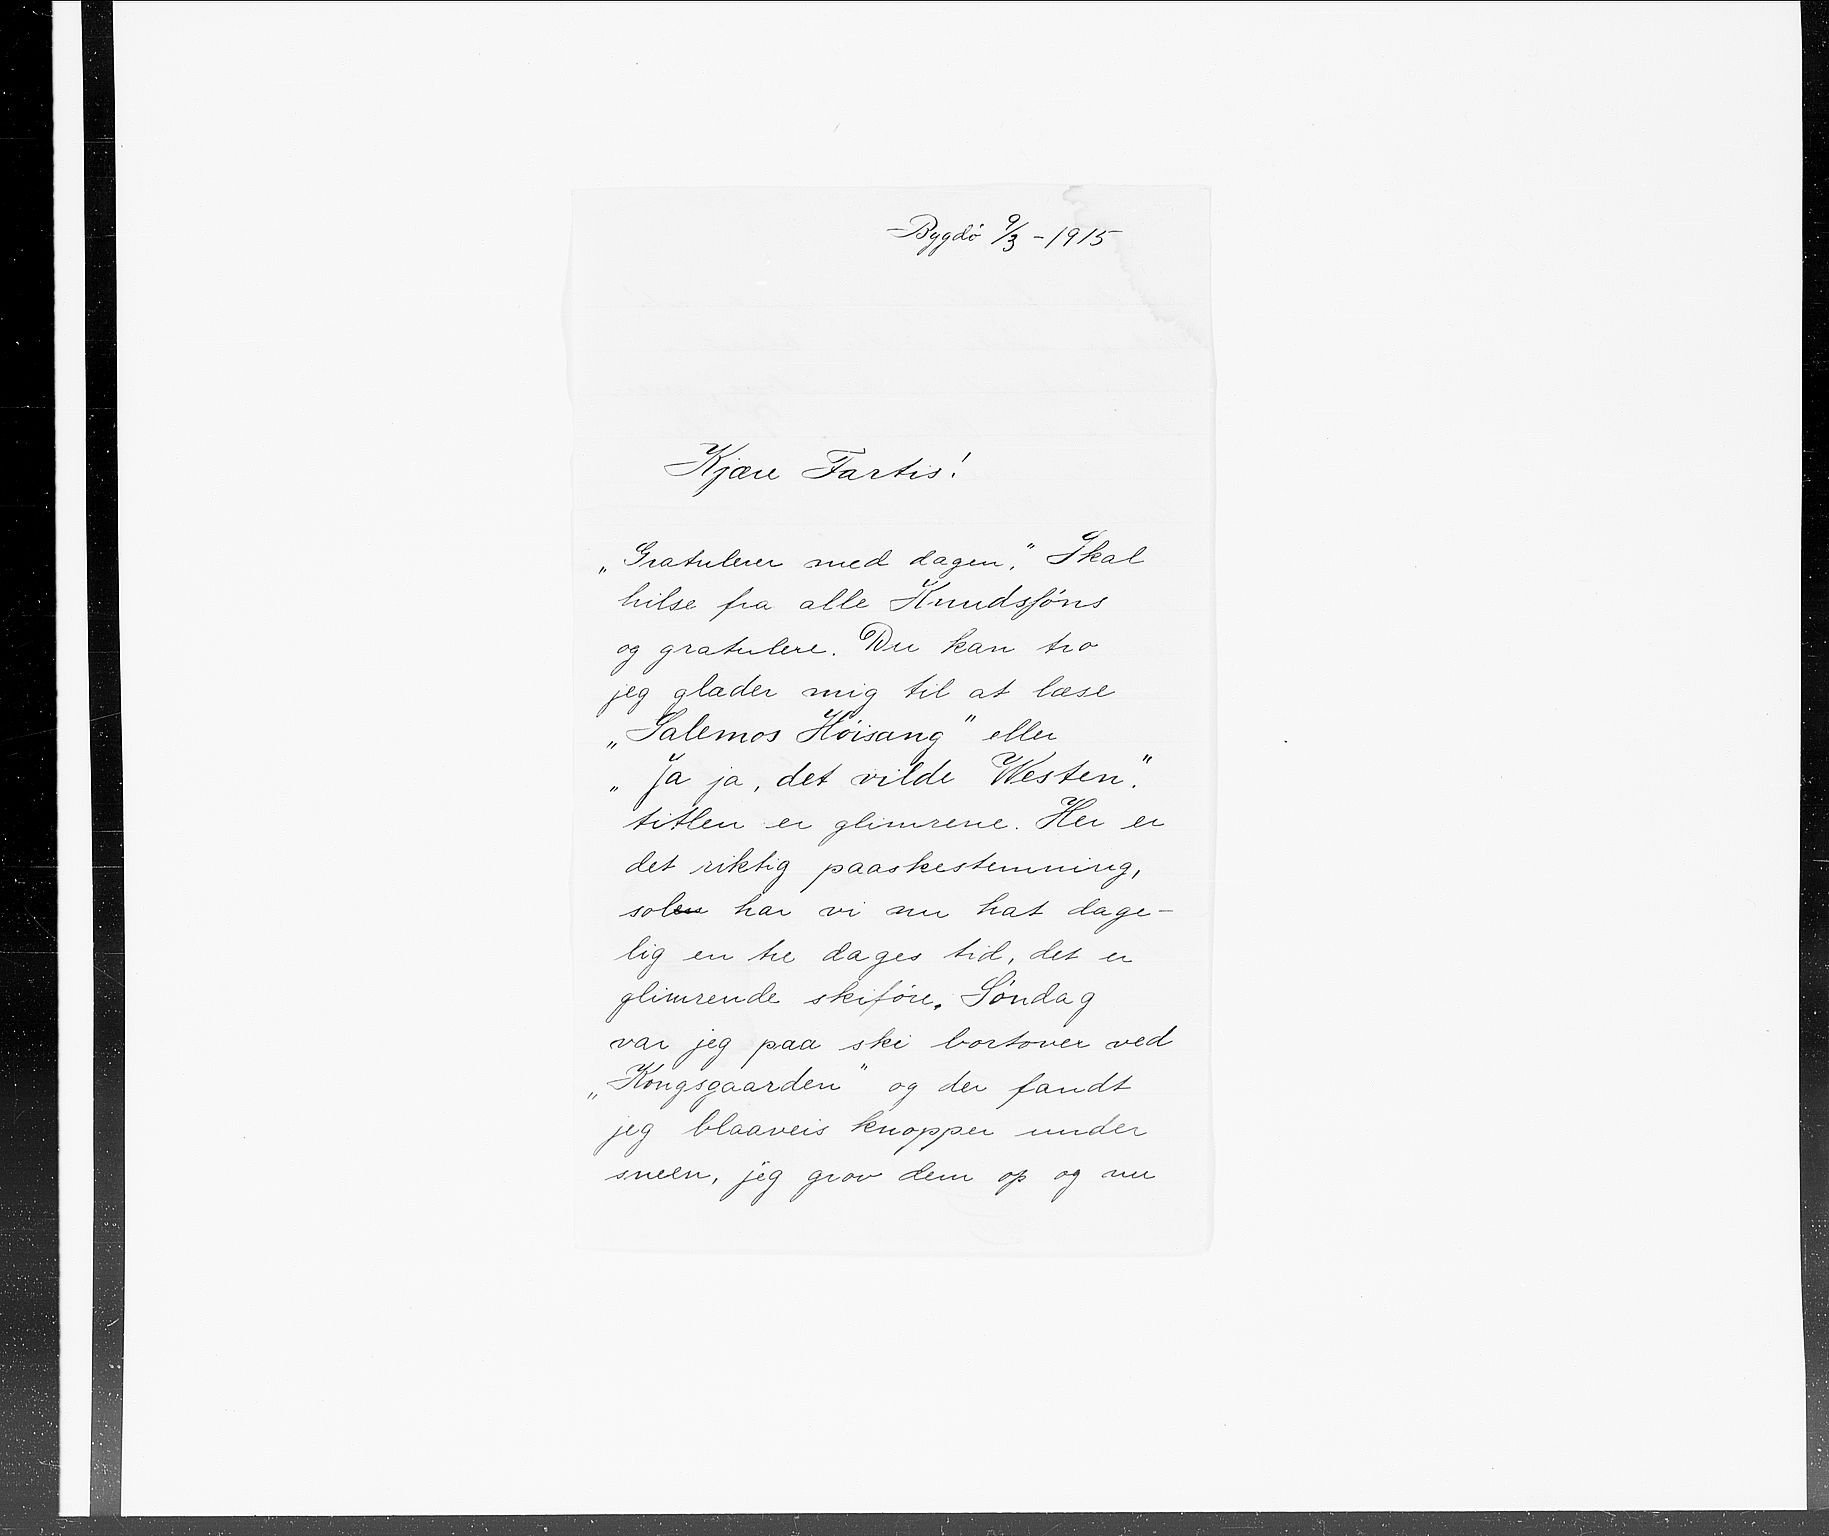 Bygdö 9/3 - 1915
Kjære Fartis!
„Gratulerer med dagen." Skal
hilse fra alle Knudsföns
og gratulere. Du kan tro
jeg glæder mig til at læse
„Salemos Höisang" eller
„Ja ja, det vilde Westen".
titlen er glimrene. Her er
det riktig paaskestemning,
solen har vi nu hat dage-
lig en tre dages tid, det er
glimrende skiföre. Söndag
var jeg paa ski bortover ved
„Kongsgaarden" og der fandt
jeg blaaveis knopper under
sneen, jeg grov dem op og nu